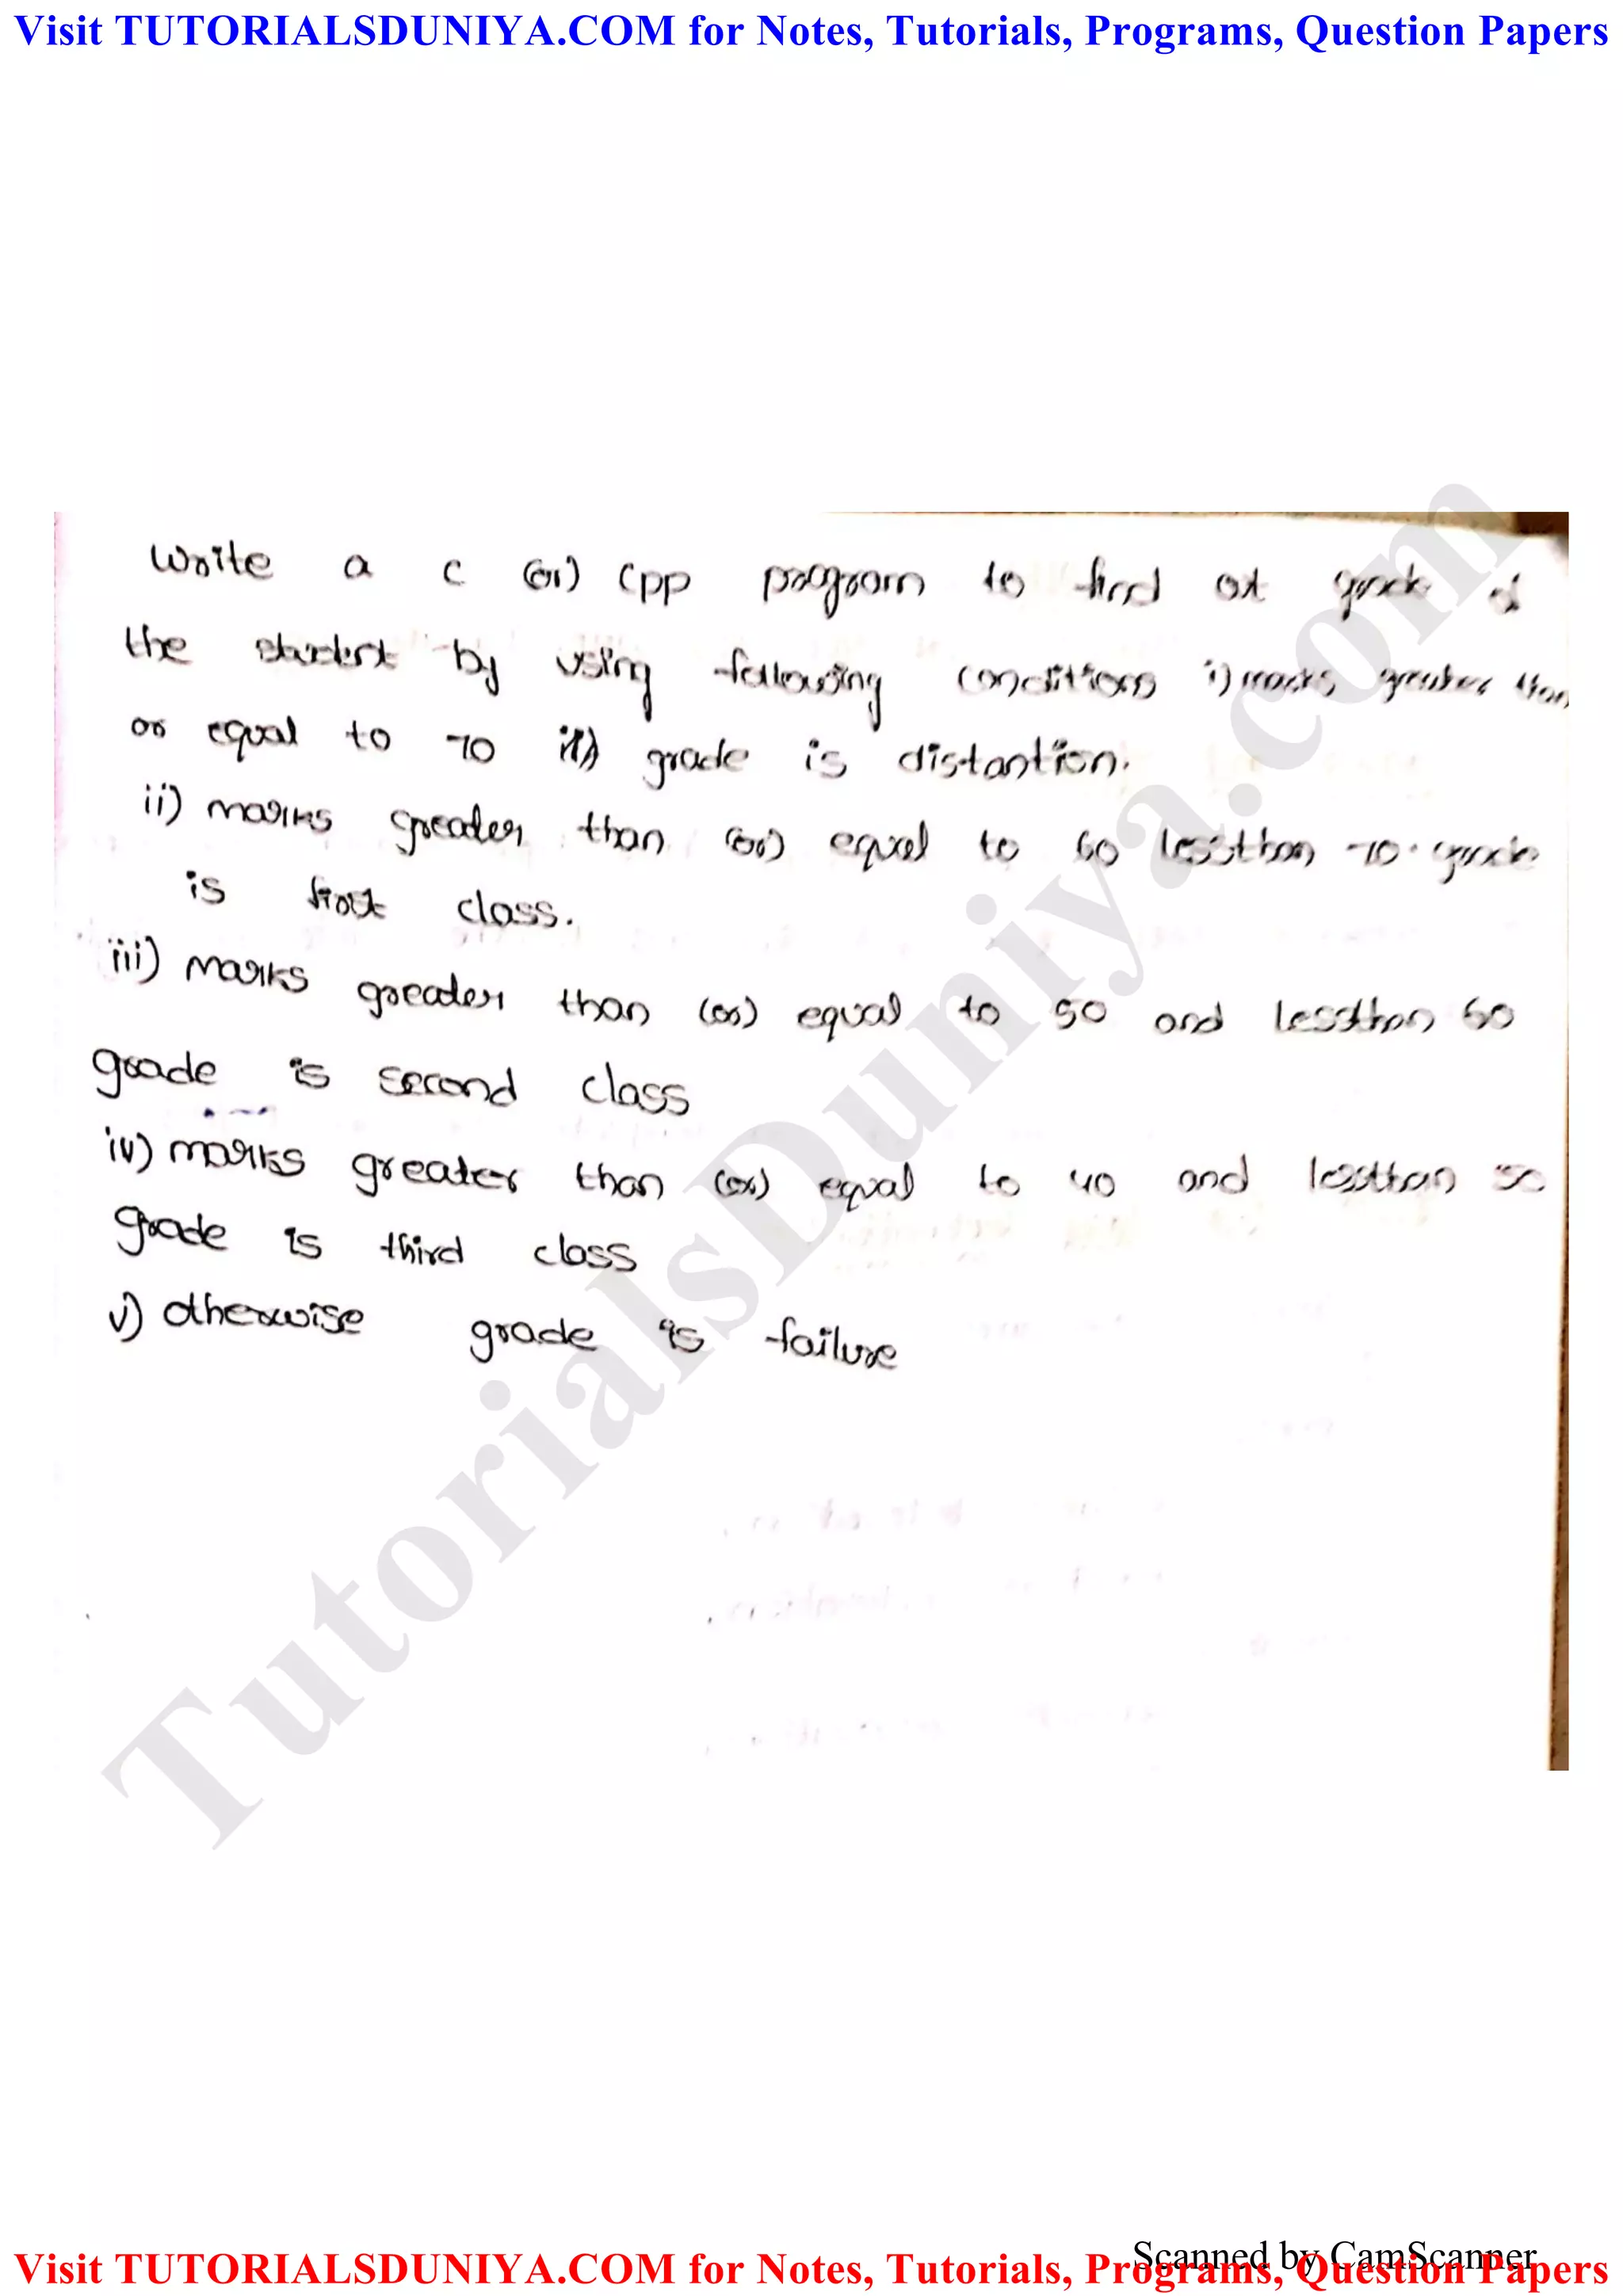 Visit TUTORIALSDUNIYA.COM for Notes, Tutorials, Programs, Question Papers
Write a C (or) Cpp program to find out grade of
the student by using following conditions i) marks greater than
or equal to 70 grade is distantion.
ii) marks greater than (or) equal to 60 lessthan 70. grade
is first class.
iii) marks greater than (or) equal to 50 and lessthan 60
grade is second class
iv) marks greater than (or) equal to 40 and lessthan 50
grade is third class
v) otherwise grade is failure
TutorialsDuniya.com
Scanned by CamScanner
Visit TUTORIALSDUNIYA.COM for Notes, Tutorials, Programs, Question Papers